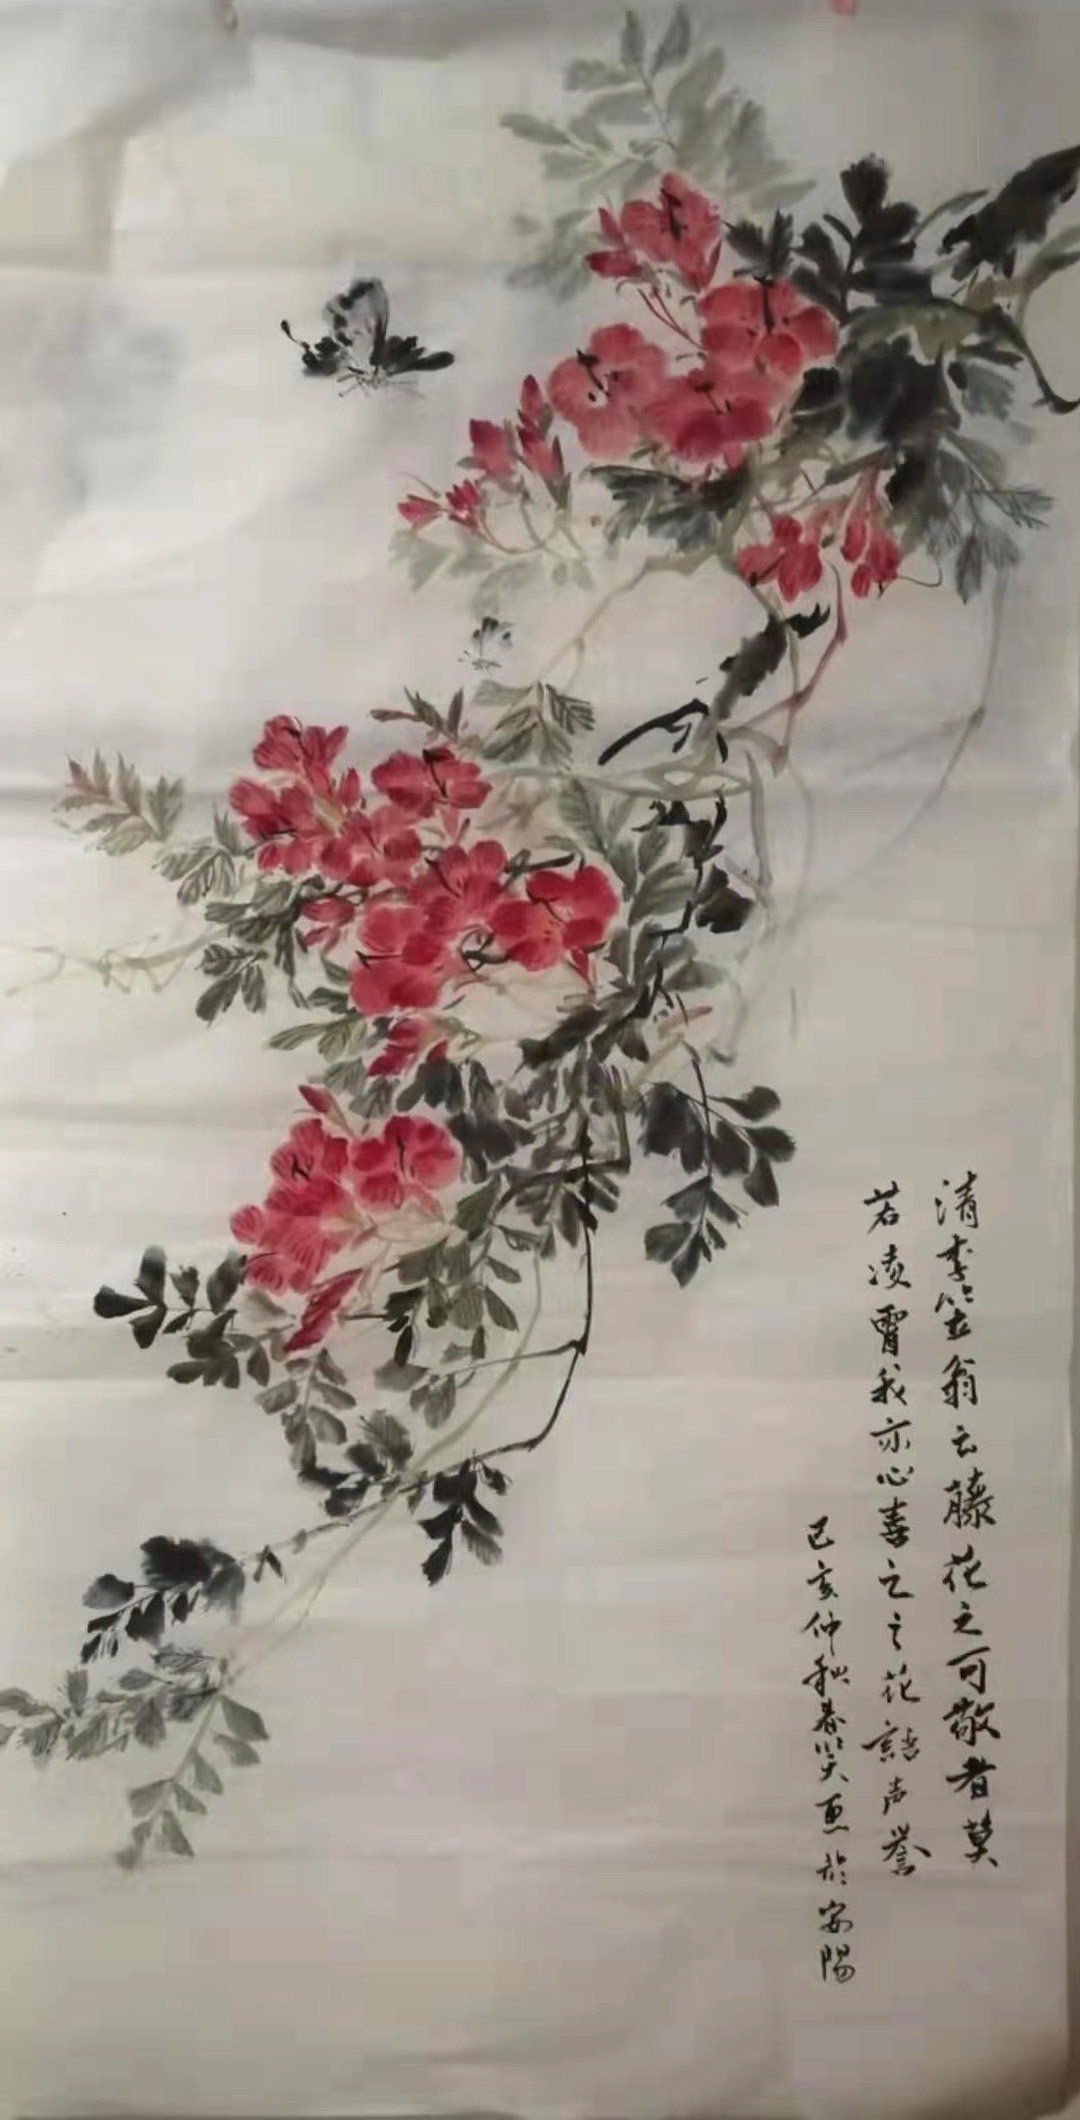 清李笠翁云藤花之可敬者莫
若凌霄我亦心喜之之花語声誉
己亥仲秋春笑画於安陽